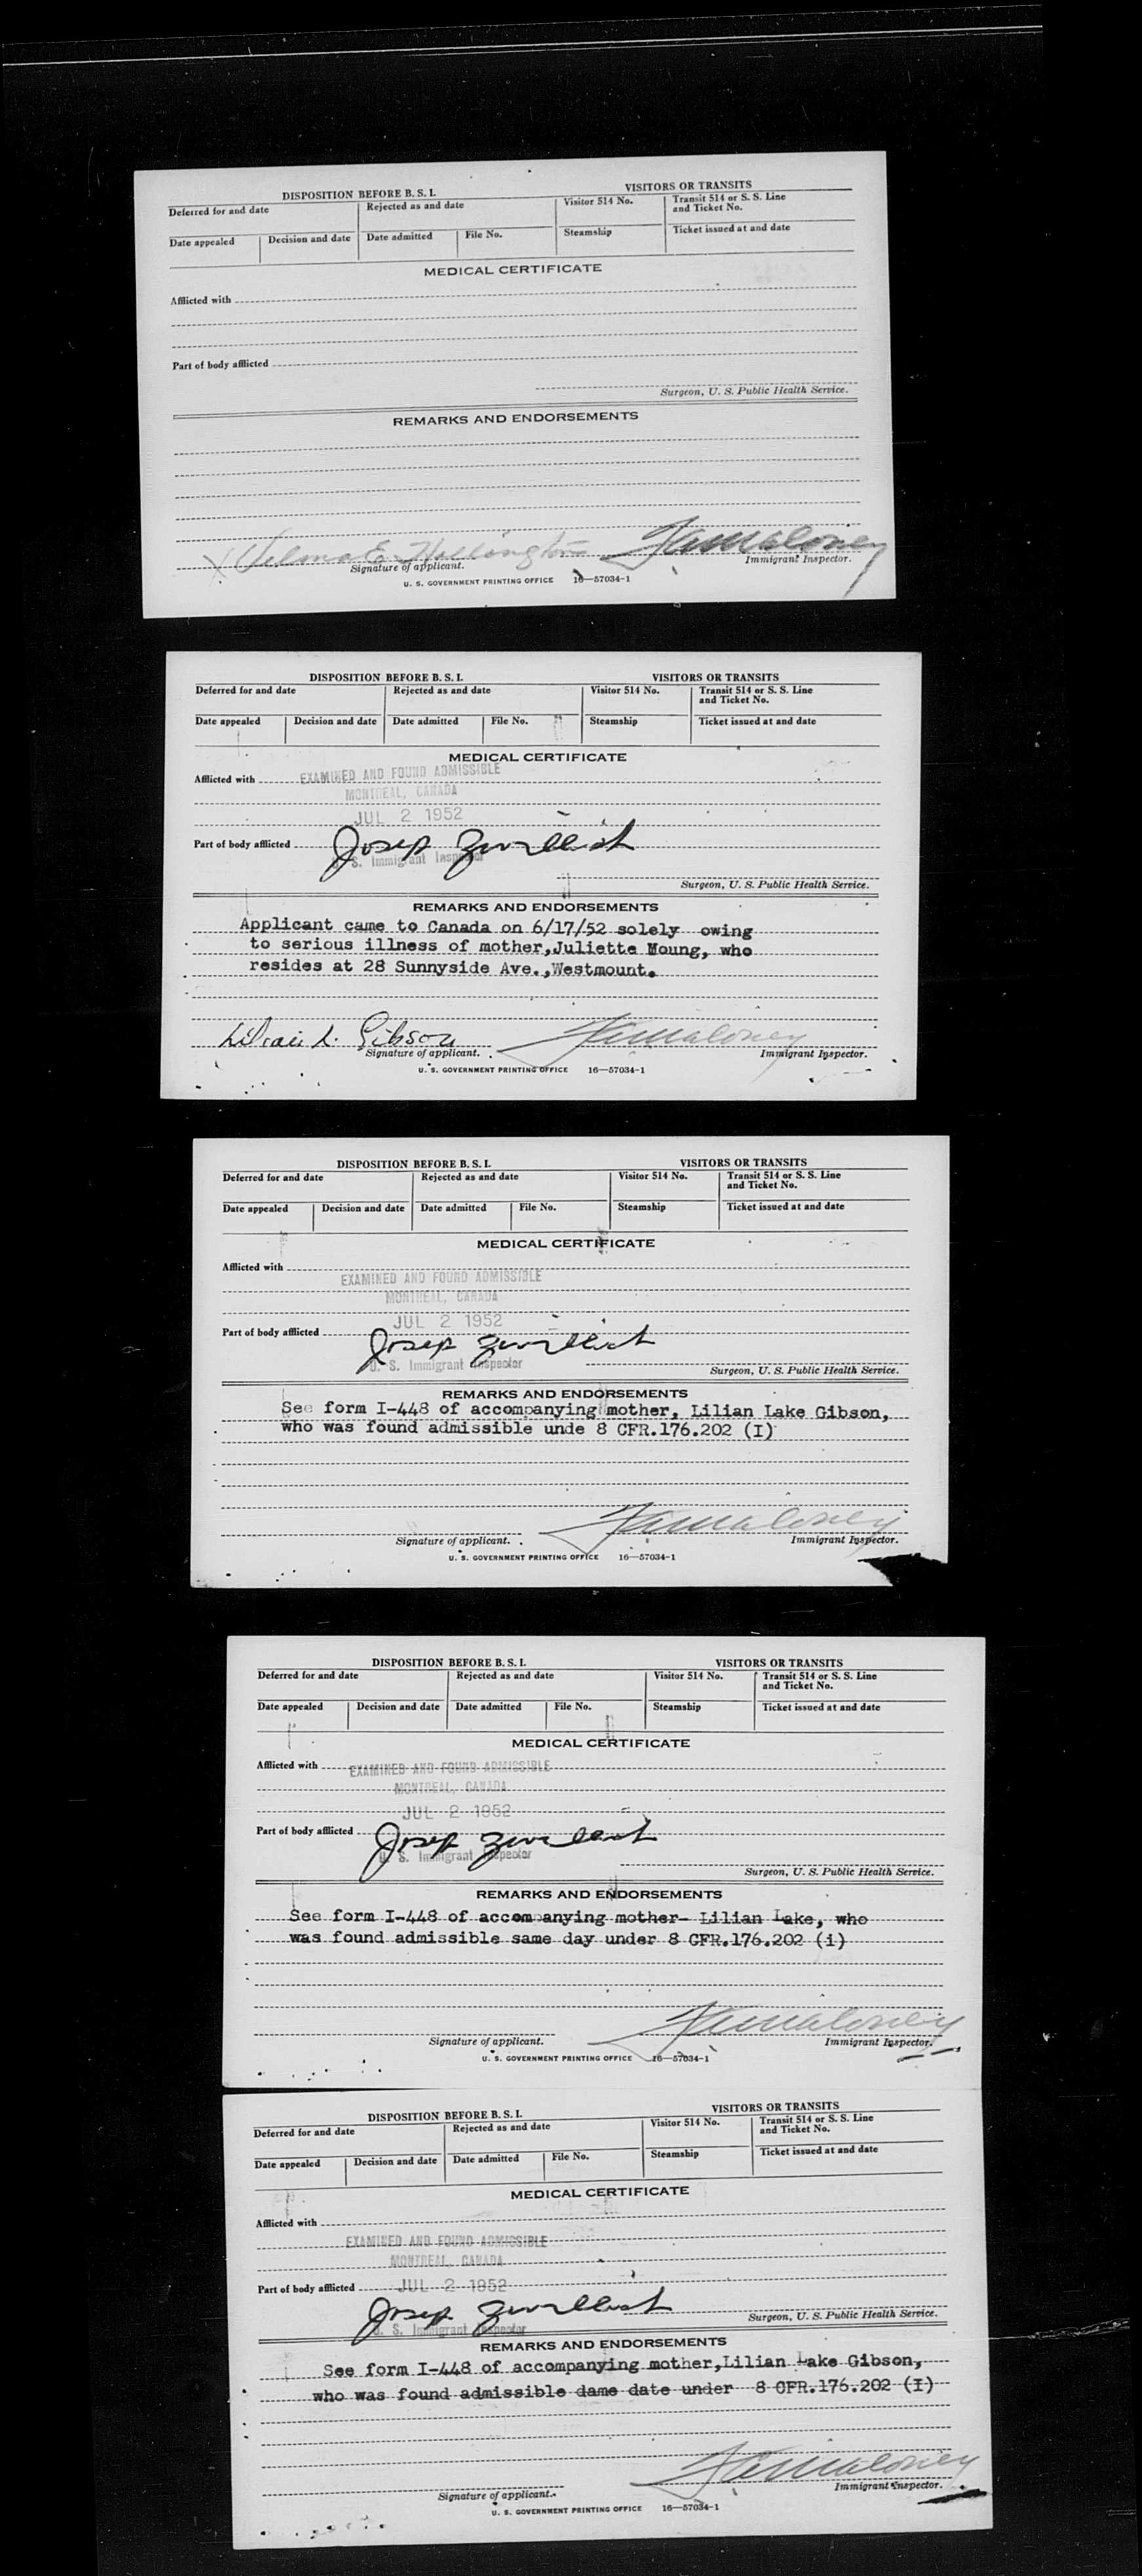 DISPOSITION BEFORE B. S. I. VISITORS OR TRANSITS
Deferred for and date Rejected as and date Visitor 514 No. Transit 514 or S. S. Line and Ticket No.
Date appealed Decision and date Date admitted File No. Steamship Ticket issued at and date
MEDICAL CERTIFICATE
Afflicted with
Part of body afflicted
Surgeon, U. S. Public Health Service.
REMARKS AND ENDORSEMENTS
X Velma E. Hollington
Signature of applicant. Immigrant Inspector.
U. S. GOVERNMENT PRINTING OFFICE 16—57034-1
DISPOSITION BEFORE B. S. I. VISITORS OR TRANSITS
Deferred for and date Rejected as and date Visitor 514 No. Transit 514 or S. S. Line and Ticket No.
Date appealed Decision and date Date admitted File No. Steamship Ticket issued at and date
MEDICAL CERTIFICATE
Afflicted with EXAMINED AND FOUND ADMISSIBLE
MONTREAL, CANADA
JUL 2 1952
Part of body afflicted
U. S. Immigrant Inspector
Surgeon, U. S. Public Health Service.
REMARKS AND ENDORSEMENTS
Applicant came to Canada on 6/17/52 solely owing
to serious illness of mother,Juliette Moung, who
resides at 28 Sunnyside Ave.,Westmount.
Lilian L. Gibson
Signature of applicant. Immigrant Inspector.
U. S. GOVERNMENT PRINTING OFFICE 16—57034-1
DISPOSITION BEFORE B. S. I. VISITORS OR TRANSITS
Deferred for and date Rejected as and date Visitor 514 No. Transit 514 or S. S. Line and Ticket No.
Date appealed Decision and date Date admitted File No. Steamship Ticket issued at and date
MEDICAL CERTIFICATE
Afflicted with
EXAMINED AND FOUND ADMISSIBLE
MONTREAL, CANADA
JUL 2 1952
Part of body afflicted
U. S. Immigrant Inspector
Surgeon, U. S. Public Health Service.
REMARKS AND ENDORSEMENTS
See form I-448 of accompanying mother, Lilian Lake Gibson,
who was found admissible unde 8 CFR.176.202 (I)
Signature of applicant. Immigrant Inspector.
U. S. GOVERNMENT PRINTING OFFICE 16—57034-1
DISPOSITION BEFORE B. S. I. VISITORS OR TRANSITS
Deferred for and date Rejected as and date Visitor 514 No. Transit 514 or S. S. Line and Ticket No.
Date appealed Decision and date Date admitted File No. Steamship Ticket issued at and date
MEDICAL CERTIFICATE
Afflicted with EXAMINED AND FOUND ADMISSIBLE
MONTREAL, CANADA
JUL 2 1952
Part of body afflicted
U. S. Immigrant Inspector
Surgeon, U. S. Public Health Service.
REMARKS AND ENDORSEMENTS
See form I-448 of accompanying mother- Lilian Lake, who
was found admissible same day under 8 CFR.176.202 (i)
Signature of applicant. Immigrant Inspector.
U. S. GOVERNMENT PRINTING OFFICE 16—57034-1
DISPOSITION BEFORE B. S. I. VISITORS OR TRANSITS
Deferred for and date Rejected as and date Visitor 514 No. Transit 514 or S. S. Line and Ticket No.
Date appealed Decision and date Date admitted File No. Steamship Ticket issued at and date
MEDICAL CERTIFICATE
Afflicted with
EXAMINED AND FOUND ADMISSIBLE
MONTREAL, CANADA
Part of body afflicted JUL 2 1952
U. S. Immigrant Inspector
Surgeon, U. S. Public Health Service.
REMARKS AND ENDORSEMENTS
See form I-448 of accompanying mother,Lilian Lake Gibson,
who was found admissible dame date under 8 CFR.176.202 (I)
Signature of applicant. Immigrant Inspector.
U. S. GOVERNMENT PRINTING OFFICE 16—57034-1